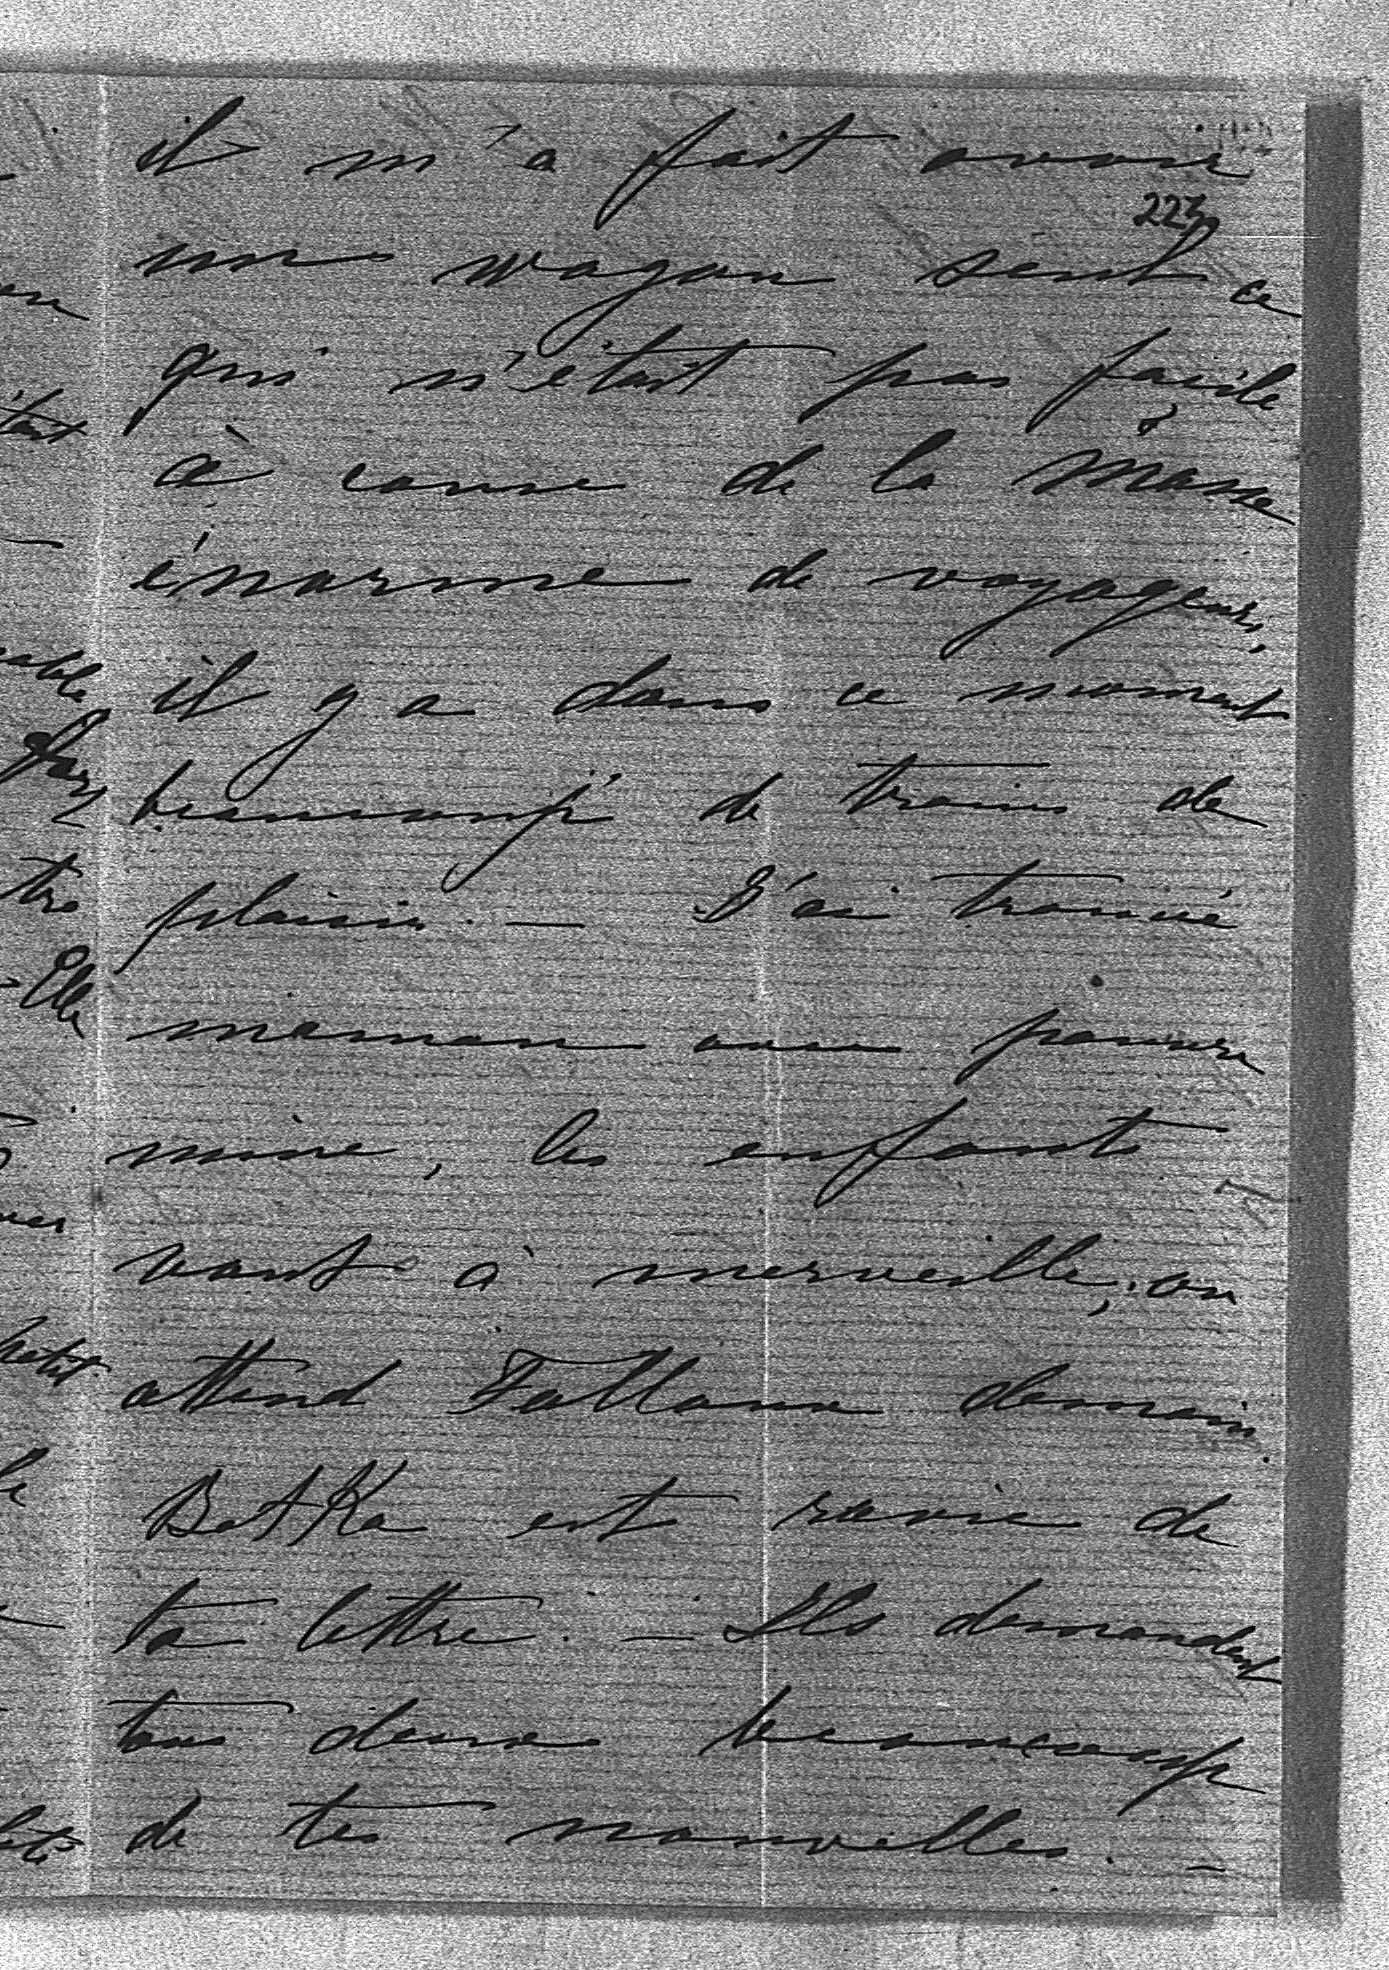 il m'a fait avoir
223
un wagon seul ce
qui n'était pas facile
à cause de la masse
énorme de voyageurs,
il y a dans ce moment
beaucoup de trains de
plaisir. — J'ai trouvé
maman avec pauvre
mine, les enfants
vont à merveille, on
attend Falloux demain.
Betka est ravie de
ta lettre. — Ils demandent
tous deux beaucoup
de tes nouvelles. —